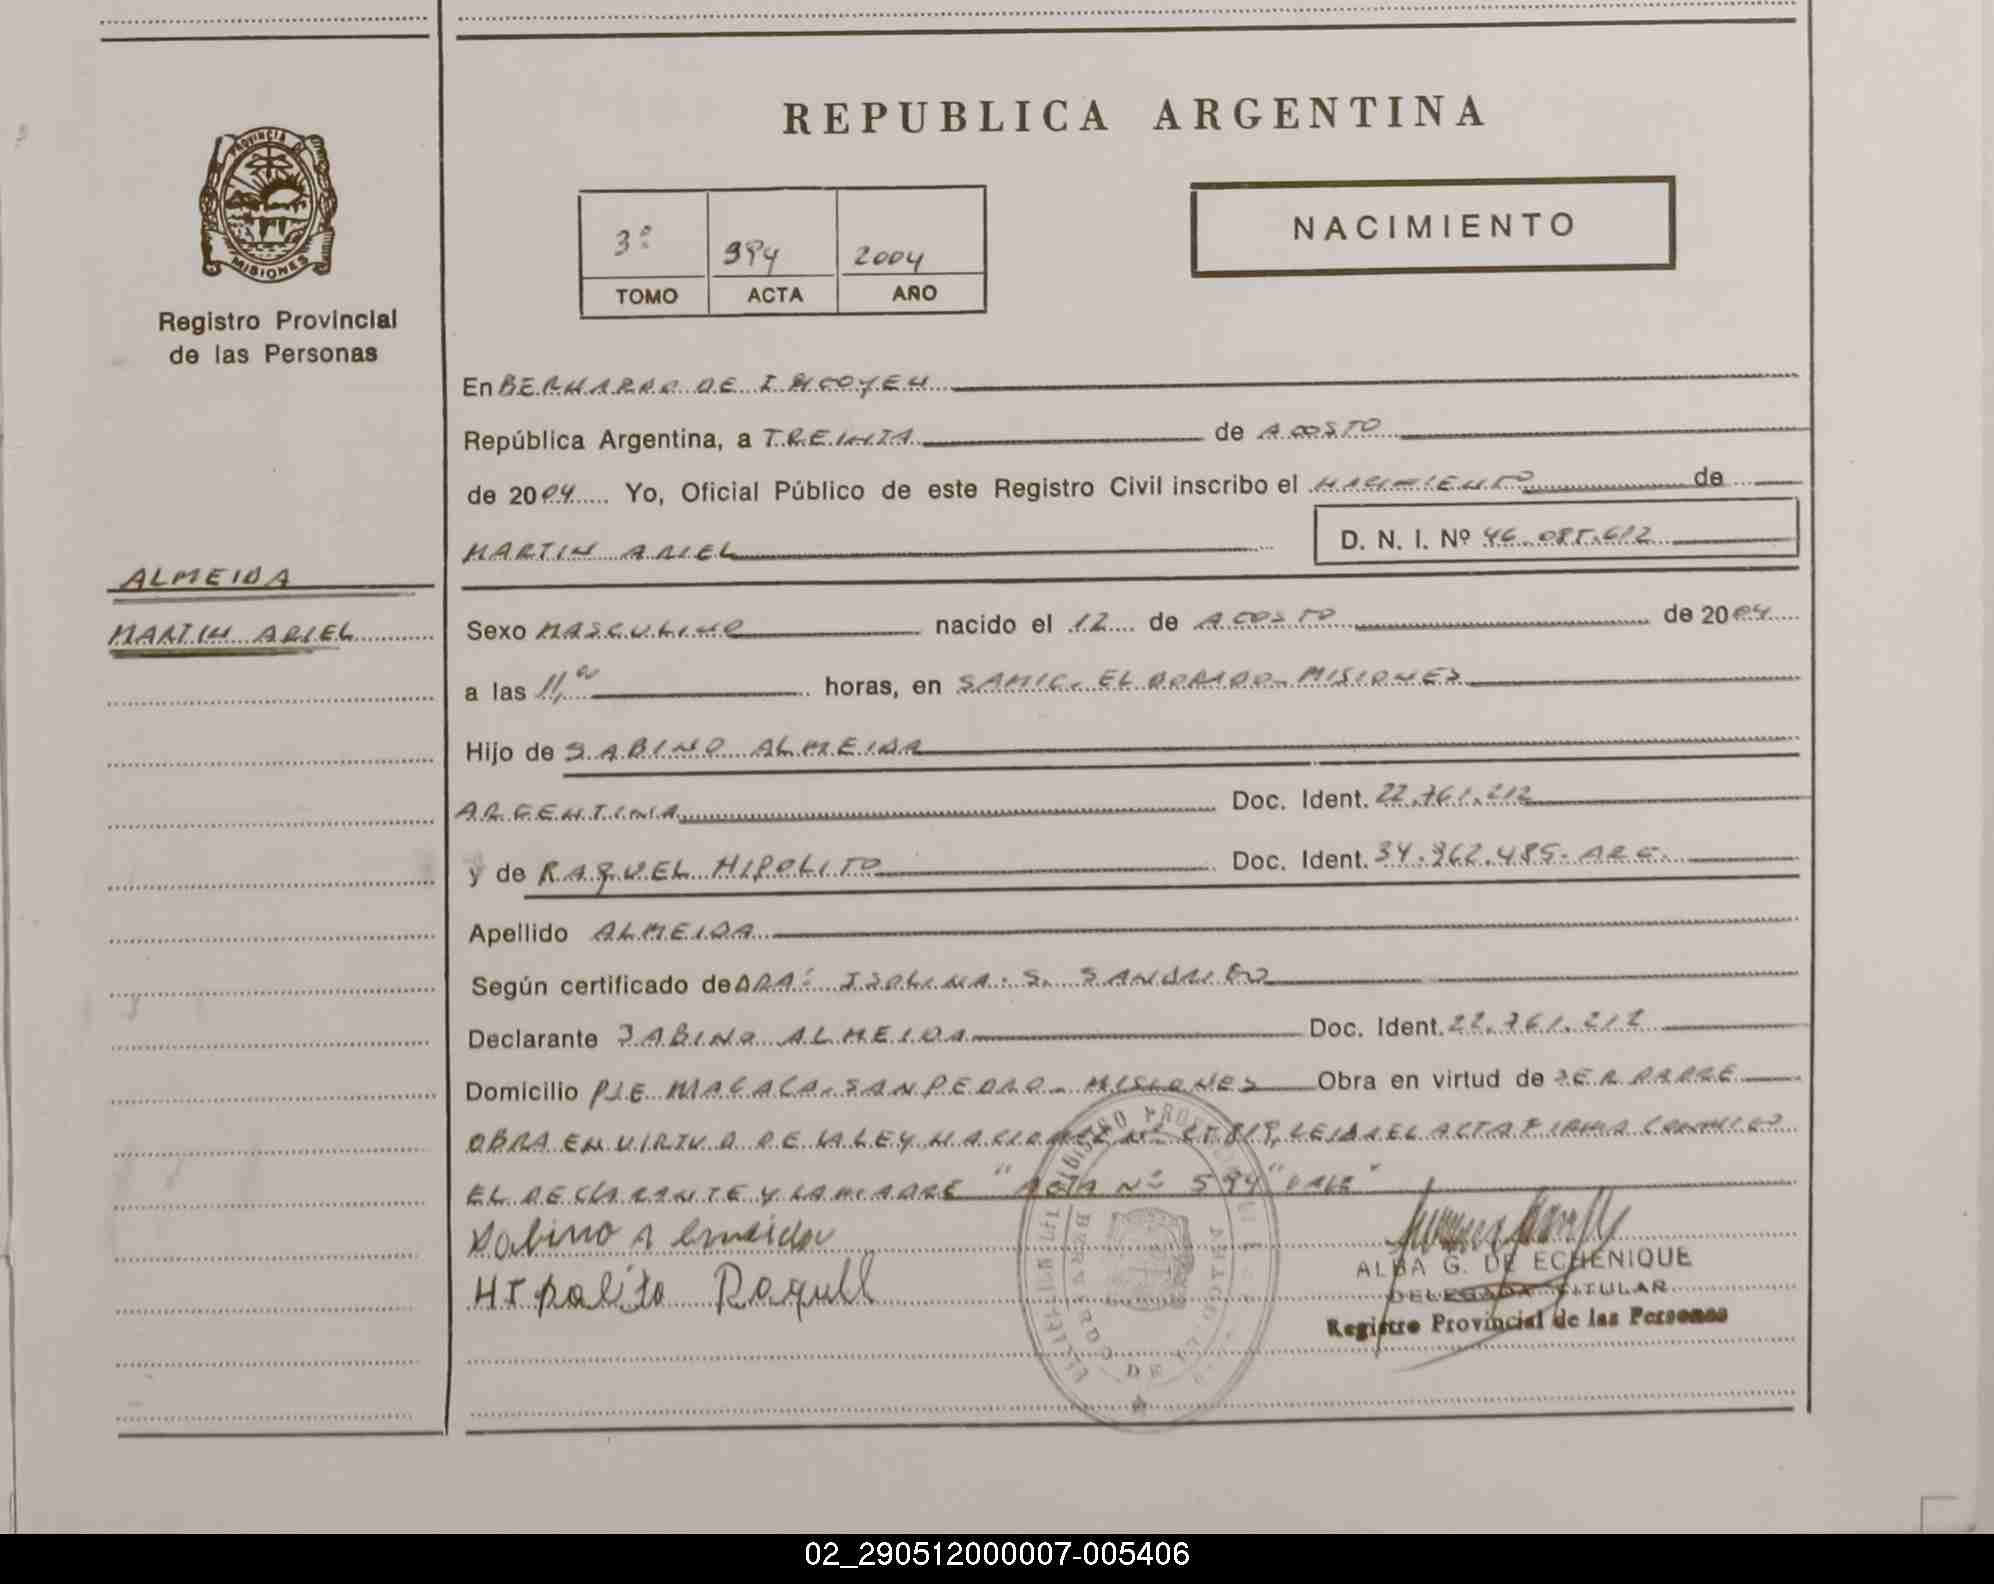 REPUBLICA ARGENTINA
PROVINCIA DE
MISIONES
Registro Provincial
de las Personas
3º 2004
TOMO ACTA AÑO
NACIMIENTO
En BERNARDO DE IRIGOYEN
República Argentina, a TREINTA de AGOSTO
de 2004 Yo, Oficial Público de este Registro Civil inscribo el NACIMIENTO de
MARTIN ARIEL D. N. I. Nº 46.085.612
ALMEIDA
MARTIN ARIEL
Sexo MASCULINO nacido el 12 de AGOSTO de 2004
a las 11,00 horas, en SAMIC. ELDORADO-MISIONES
Hijo de SABINO ALMEIDA
ARGENTINA Doc. Ident. 22.761.212
y de RAQUEL HIPOLITO Doc. Ident. 34.962.485-ARG.
Apellido ALMEIDA
Según certificado de DRA: ISOLINA. S.
Declarante SABINO ALMEIDA Doc. Ident. 22.761.212
Domicilio PJE MACACA-SAN PEDRO-MISIONES Obra en virtud de SER PADRE
OBRA EN VIRTUD DE LA LEY NACIONAL Nº LEIDA EL ACTA FIRMA CONMIGO
EL DECLARANTE Y LA MADRE "ACTA Nº 594" VALE"
Sabino Almeida
HIpolito Raquell
ALBA G. DE ECHENIQUE
DELEGADA TITULAR
Registro Provincial de las Personas
BERNARDO DE
02_290512000007-005406